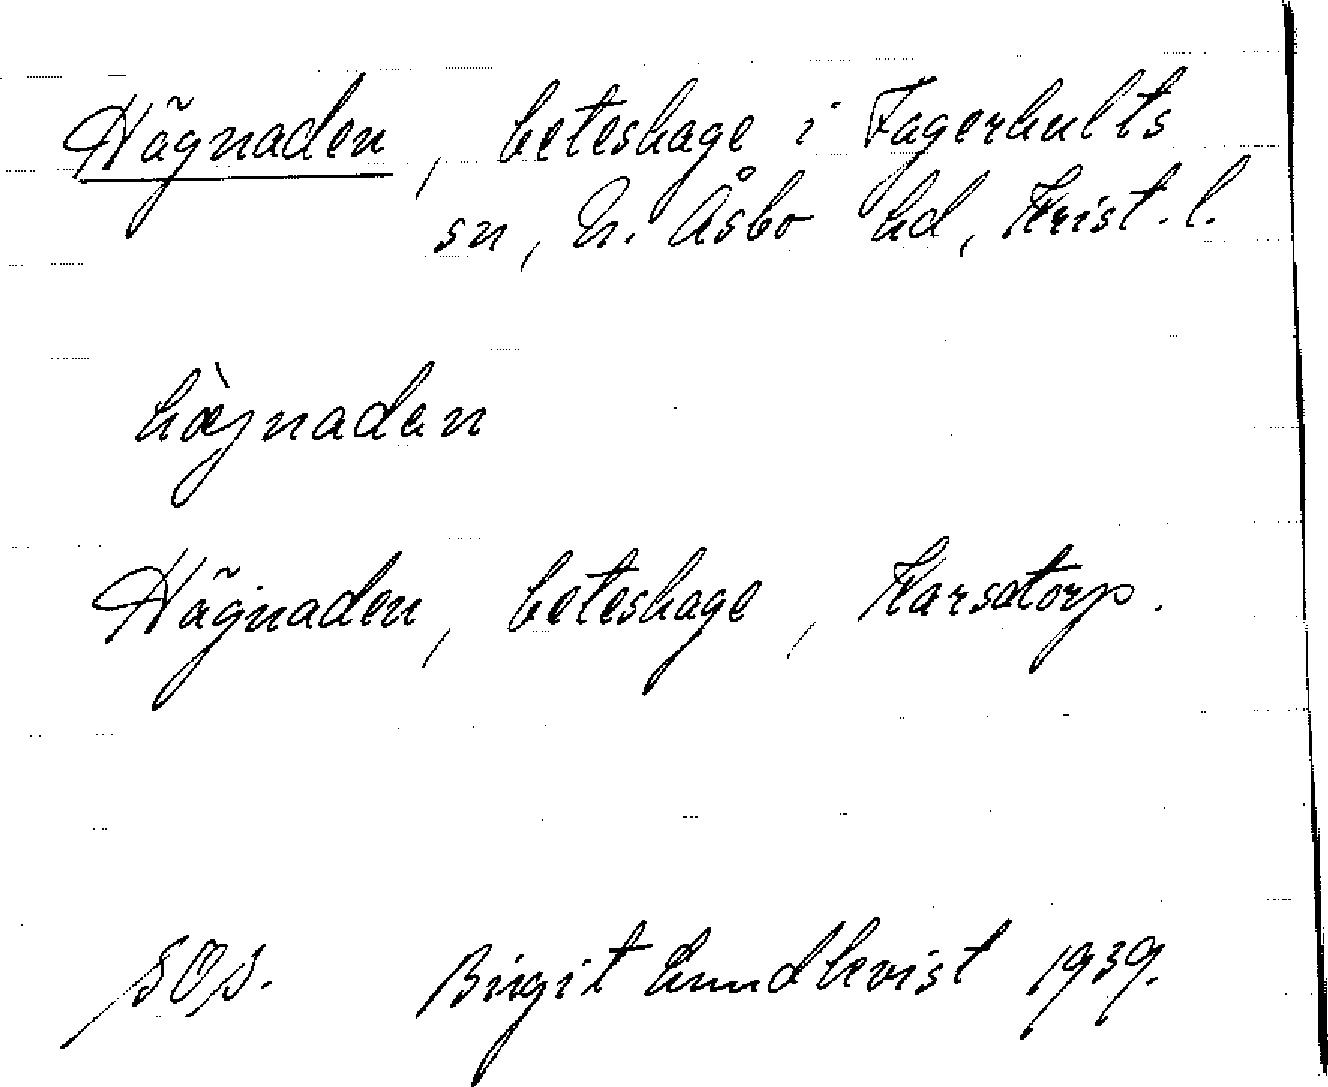 Hägnaden, beteshage i Fagerhults
sn, N. Åsbo hd, Krist. l.
hæ̀jnadan
Hägnaden, beteshage, Karsatorp.
Birgit Lundkvist 1939.